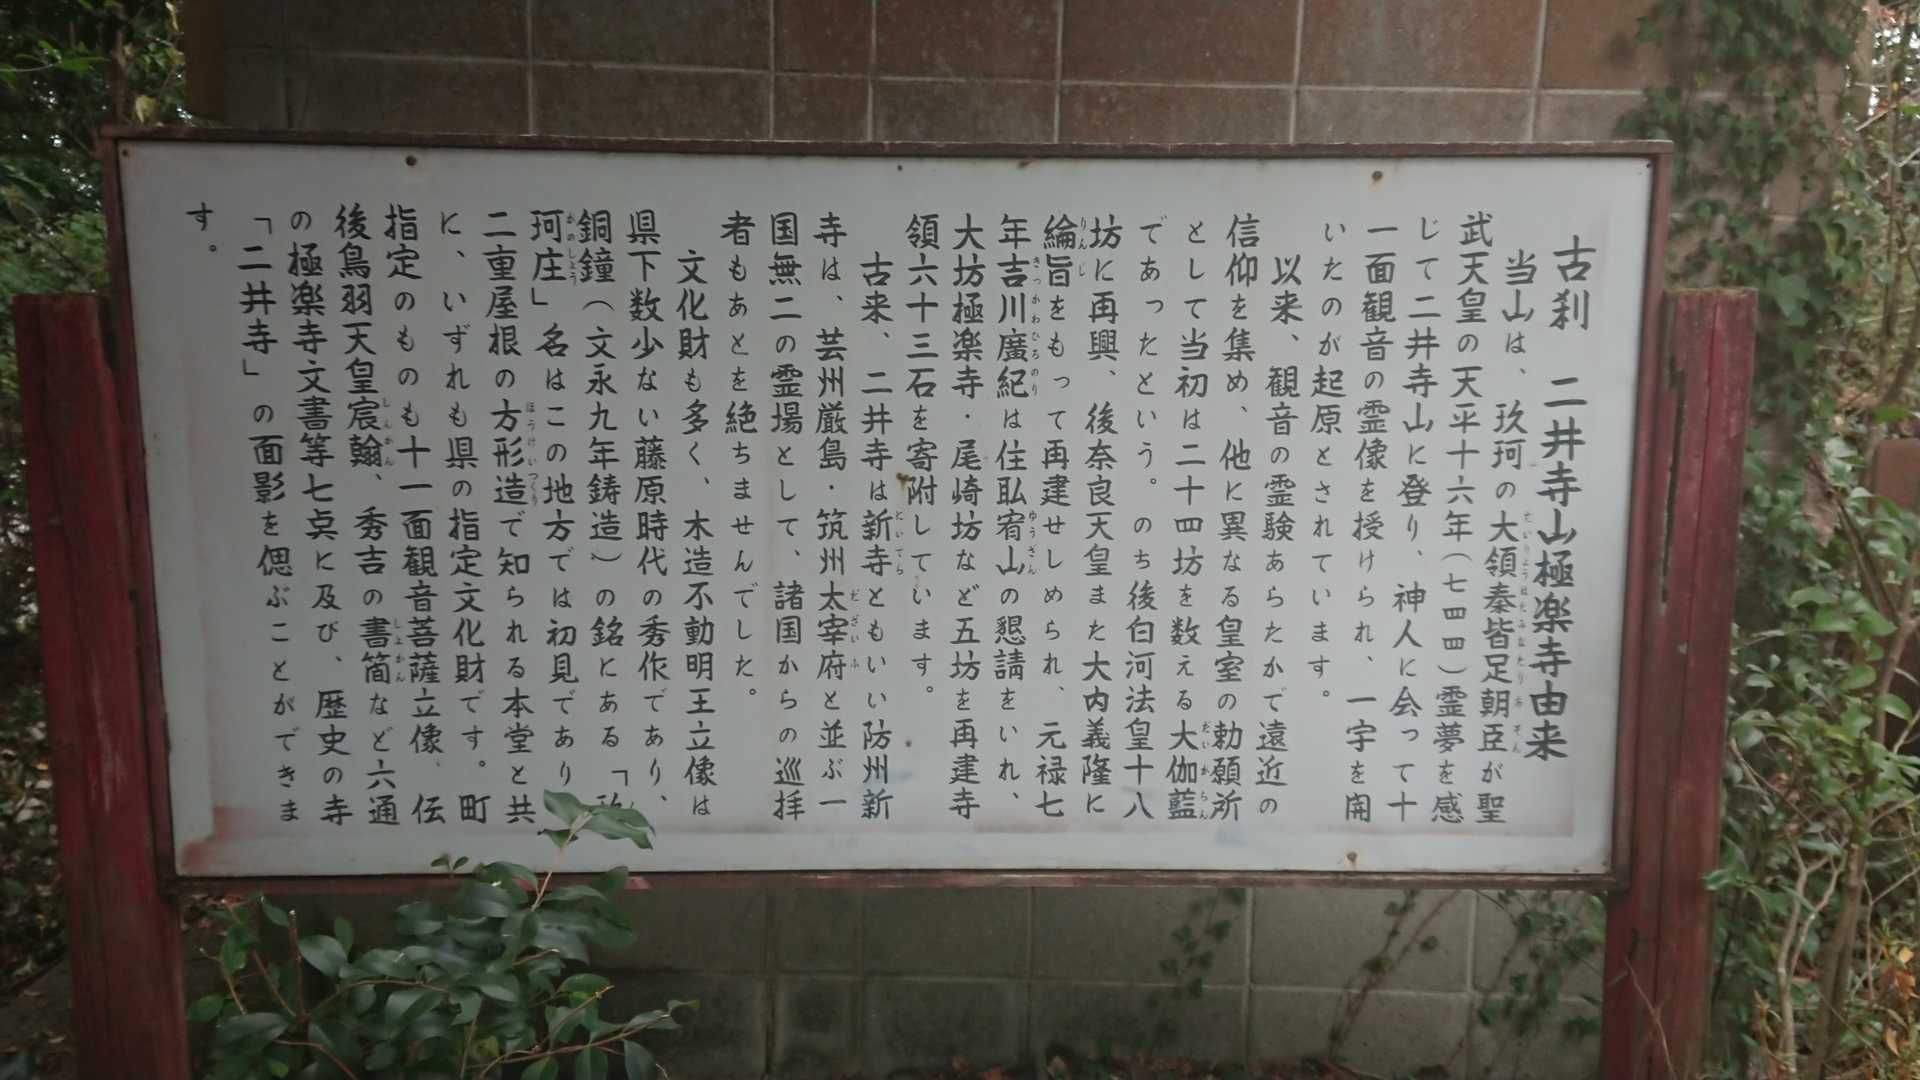 古刹 二井寺山極楽寺由来
当山は、玖珂の大領秦皆足朝臣が聖
武天皇の天平十六年（七四四）霊夢を感
じて二井寺山に登り、神人に会って十
一面観音の霊像を授けられ、一宇を開
いたのが起原とされています。
以来、観音の霊験あらたかで遠近の
信仰を集め、他に異なる皇室の勅願所
として当初は二十四坊を数える大伽藍
であったという。のち後白河法皇十八
坊に再興、後奈良天皇また大内義隆に
綸旨をもって再建せしめられ、元禄七
年吉川廣紀は住職宥山の懇請をいれ、
大坊極楽寺・尾崎坊など五坊を再建寺
領六十三石を寄附しています。
古来、二井寺は新寺ともいい防州新
寺は、芸州厳島・筑州太宰府と並ぶ一
国無二の霊場として、諸国からの巡拝
者もあとを絶ちませんでした。
文化財も多く、木造不動明王立像は
県下数少ない藤原時代の秀作であり、
銅鐘（文永九年鋳造）の銘にある「玖
珂庄」名はこの地方では初見であり
二重屋根の方形造で知られる本堂と共
に、いずれも県の指定文化財です。町
指定のものも十一面観音菩薩立像、伝
後鳥羽天皇宸翰、秀吉の書簡など六通
の極楽寺文書等七点に及び、歴史の寺
「二井寺」の面影を偲ぶことができま
す。